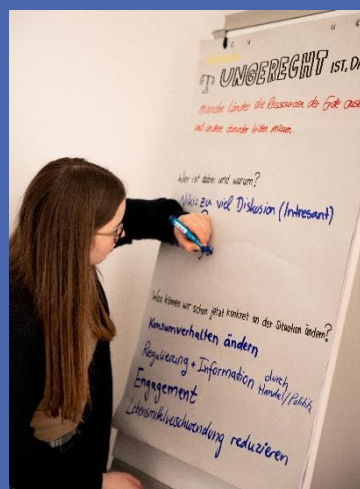 UNGERECHT IST, DA
manche Länder die Ressourcen der Erde
und andere darunter leiden müssen.
Wer ist dabei und warum?
zu viel Diskusion (Intresant)
Was können wir schon jetzt konkret an der Situation ändern?
Konsumverhalten ändern
Regulierung + Information durch Handel/Politik
Engagement
Lebensmittelverschwendung reduzieren